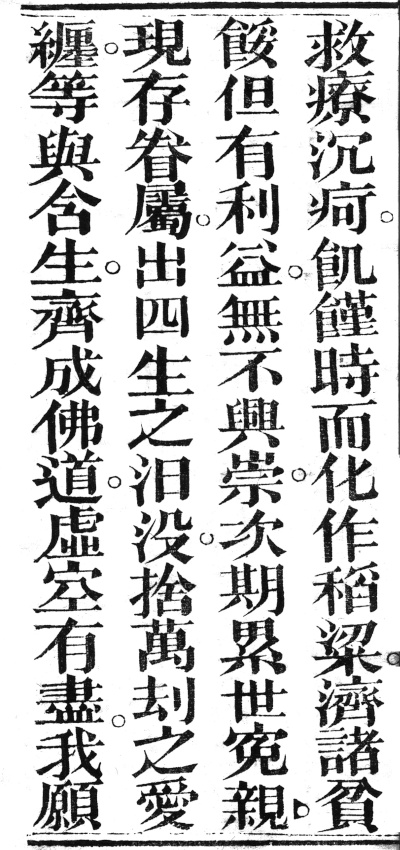 救療沉疴。飢饉時而化作稻粱。濟諸貧
餒但有利益。無不興崇。次期累世寃親。
現存眷屬。出四生之汩没。捨萬刦之愛
纏。等與含生。齊成佛道。虛空有盡。我願